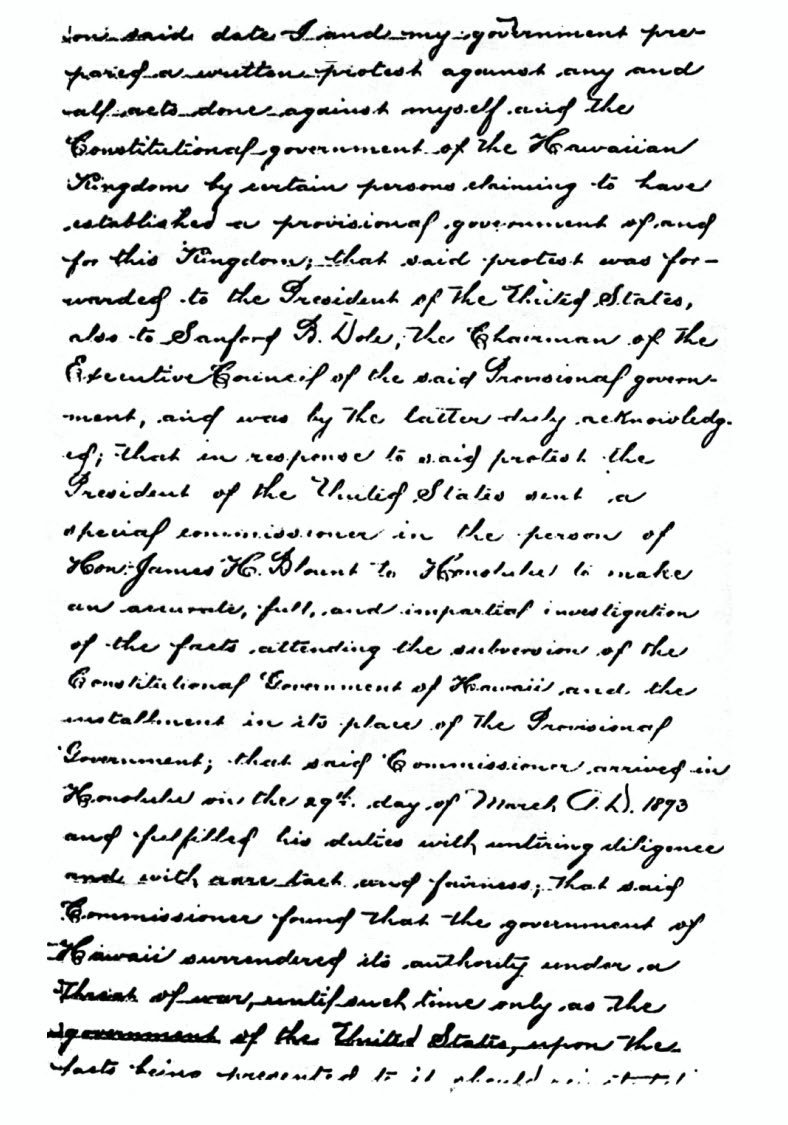 on said date I and my government pre-
pared a written protest against any and
all acts done against myself and the
Constitutional government of the Hawaiian
Kingdom by certain persons claiming to have
established a provisional government of and
for this Kingdom; that said protest was for-
warded to the President of the United States,
also to Sanford B. Dole, the Chairman of the
Executive Council of the said Provisional govern-
ment, and was by the latter duly acknowledg-
ed; that in response to said protest the
President of the United States sent a
special commissioner in the person of
Hon. James H. Blount to Honolulu to make
an accurate, full, and impartial investigation
of the facts attending the subversion of the
Constitutional Government of Hawaii and the
installment in its place of the Provisional
Government; that said Commissioner arrived in
Honolulu on the 29th. day of March A.D. 1893
and fulfilled his duties with untiring diligence
and with rare tact and fairness; that said
Commissioner found that the government of
Hawaii surrendered its authority under a
threat of war, until such time only as the
government of the United States, upon the
facts being presented to it should